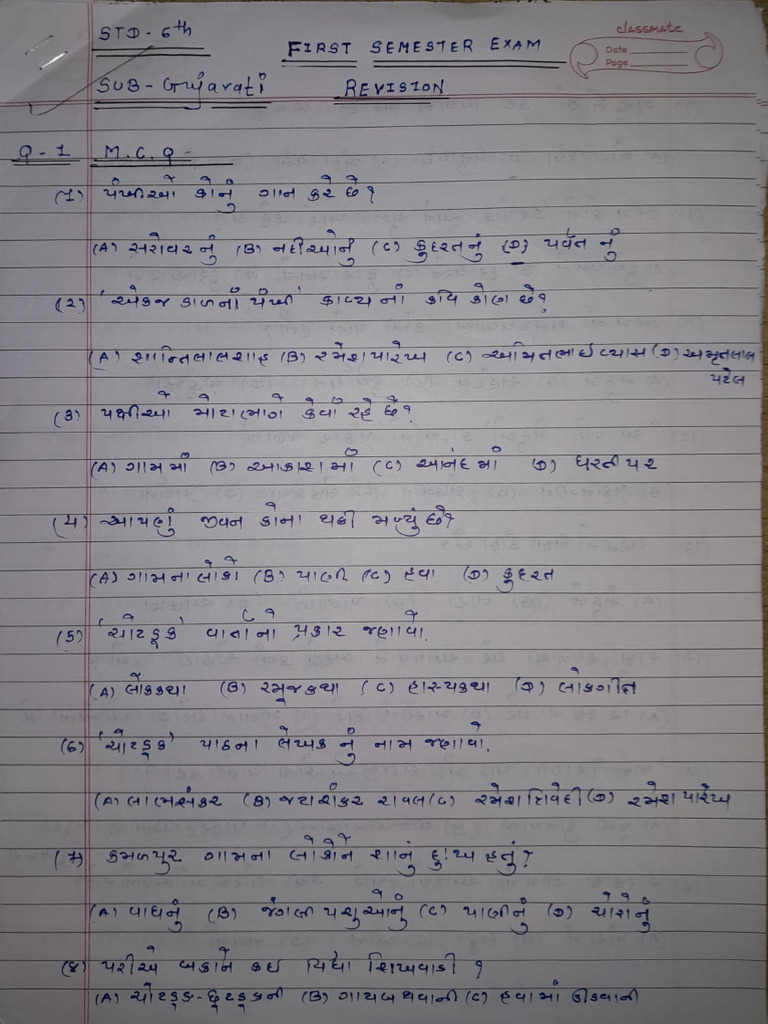 classmate
Date
Page
STD - 6th
FIRST SEMESTER EXAM
SUB - Gujarati
REVISION
Q - 1 M.C.Q -
(1) પંખીઓ કોનું ગાન કરે છે?
(A) સરોવરનું (B) નદીઓનું (C) કુદરતનું (D) પર્વતનું
(૨) 'એકજ ડાળનાં પંખી' કાવ્ય નાં કવિ કોણ છે?
(A) શાન્તિલાલ શાહ (B) રમેશ પારેખ (C) અમિતભાઈ વ્યાસ (D) અમૃતલાલ
પટેલ
(૩) પક્ષીઓ મોટાભાગે કેવાં રહે છે?
(A) ગામમાં (B) આકાશમાં (C) આનંદમાં (D) ધરતી પર
(૪) આપણું જીવન કોના થકી મળ્યું છે?
(A) ગામના લોકો (B) પાણી (C) હવા (D) કુદરત
(૫) 'ચોટડૂક' વાર્તાનો પ્રકાર જણાવો.
(A) લોકકથા (B) રમૂજકથા (C) હાસ્યકથા (D) લોકગીત
(6) 'ચોટડૂક' પાઠના લેખક નું નામ જણાવો.
(A) લાભશંકર (B) જટાશંકર રાવલ (C) રમેશ ત્રિવેદી (D) રમેશ પારેખ
(7) કમળપુર ગામના લોકોને શાનું દુઃખ હતું?
(A) વાઘનું (B) જંગલી પશુઓનું (C) પાણીનું (D) ચોરોનું
(૪) પરીએ બકાને કઇ વિદ્યા શિખવાડી ?
(A) ચોટડૂક-છૂટડૂકની (B) ગાયબ થવાની (C) હવામાં ઊડવાની